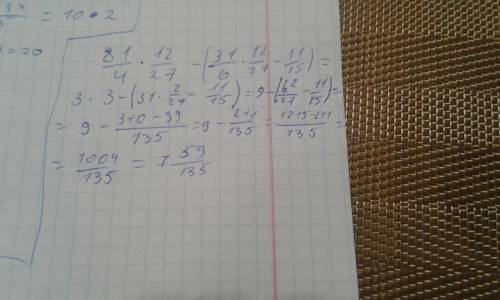 3x/3 = 10 · 2
) = 20
81/4 · 12/27 - (31/6 · 12/27 - 11/15) =
3 · 3 - (31 · 2/27 - 11/15) = 9 - (62/27 - 11/15) =
= 9 - 310 - 99/135 = 9 - 211/135 = 1215-211/135 =
= 1004/135 = 7 59/135